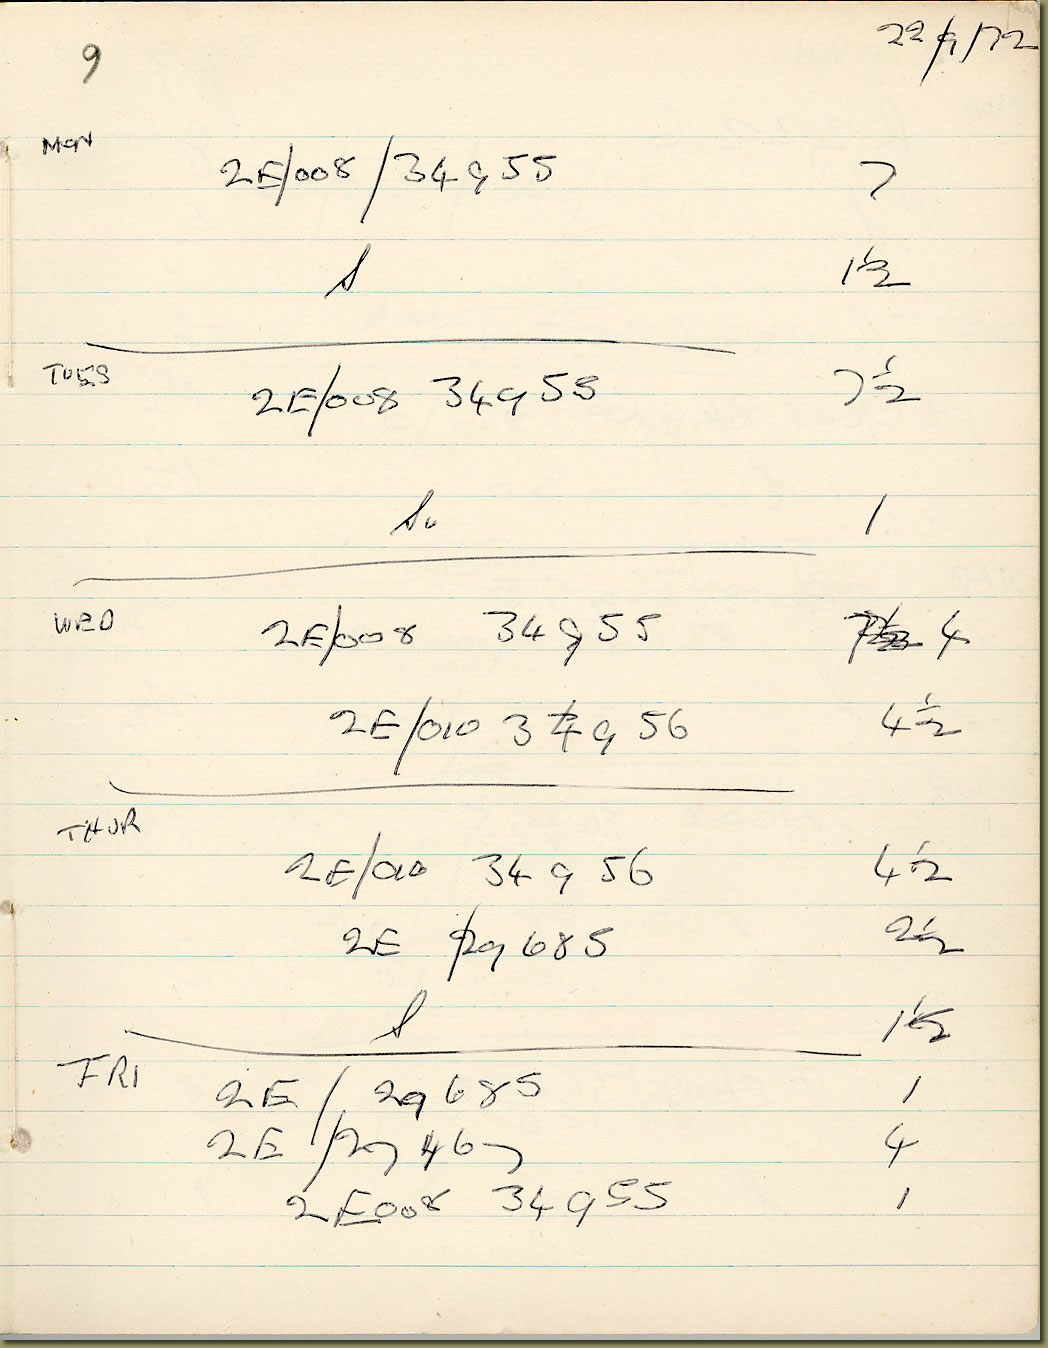 9
22/9/72
MON
2E/008/34955 7
S 1½
TUES
2E/008 34955 7½
S. 1
WED
2E/008 34955 4
2E/010 34956 4½
THUR
2E/010 34956 4½
2E /29685 2½
S 1½
FRI
2E / 29685 1
2E /27467 4
2E008 34955 1